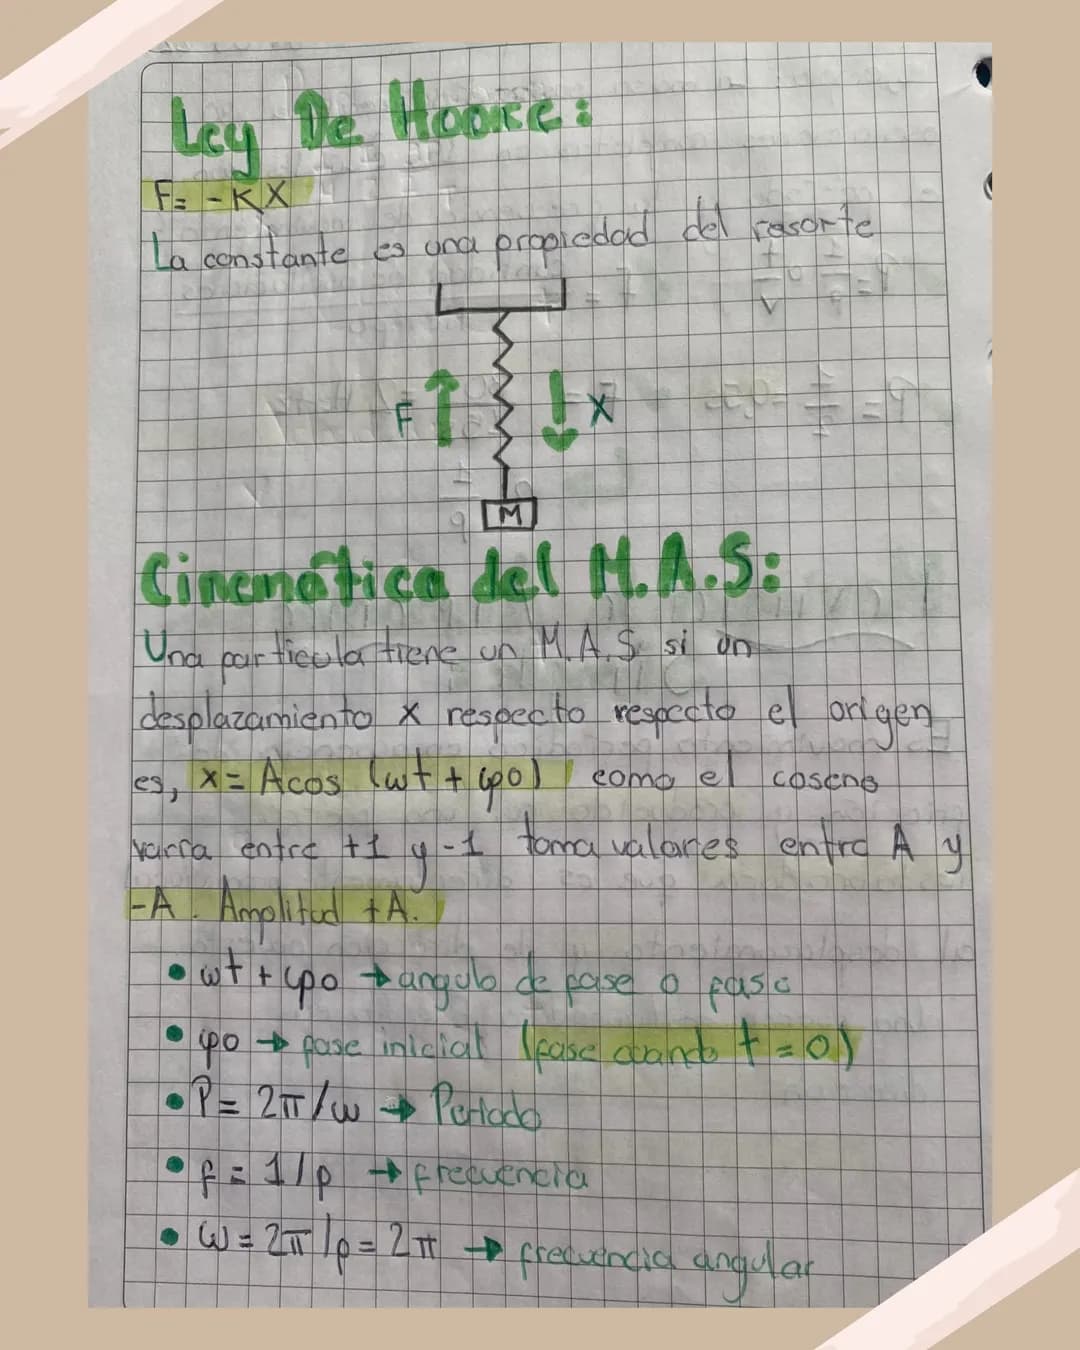 Ley De Hooke:
F= -KX
La constante es una propiedad del resorte
F X
M
Cinemática del M.A.S:
Una particula tiene un M.A.S. si un
desplazamiento x respecto respecto el origen
es, x= Acos (wt + φo) como el coseno
varia entre +1 y -1 toma valores entre A y
-A. Amplitud +A.
• wt + φo → angulo de fase o fase
• φo → fase inicial (fase cuando t = 0)
• P= 2π/w → Periodo
• f = 1/p → frecuencia
• ω = 2π/p = 2π → frecuencia angular